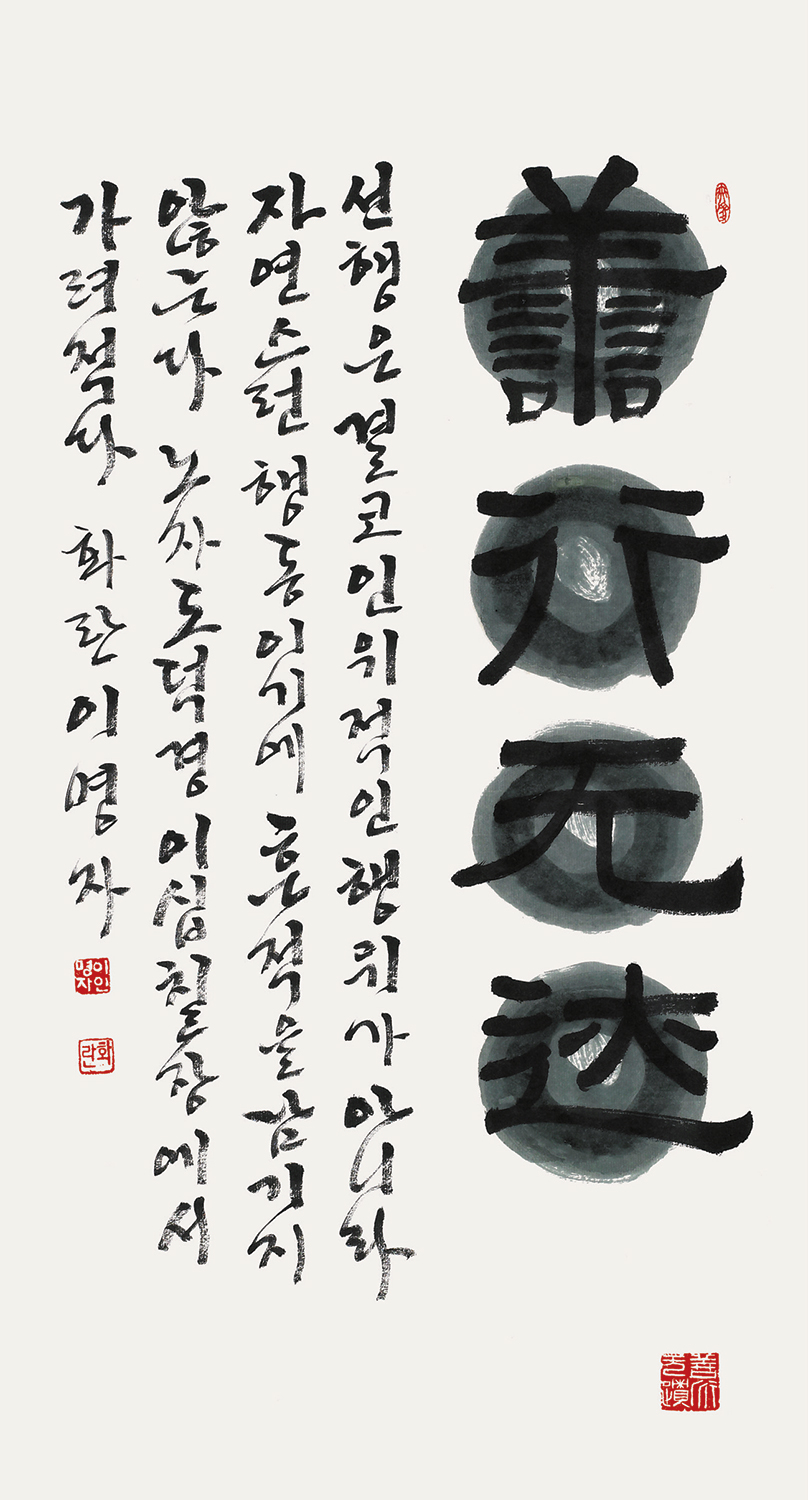 譱行无迹
선행은 결코 인위적인 행위가 아니라
자연스런 행동이기에 흔적을 남기지
않는다 노자 도덕경 이십칠장에서
가려적다 화란 이명자
이명자인
화란
善行无蹟